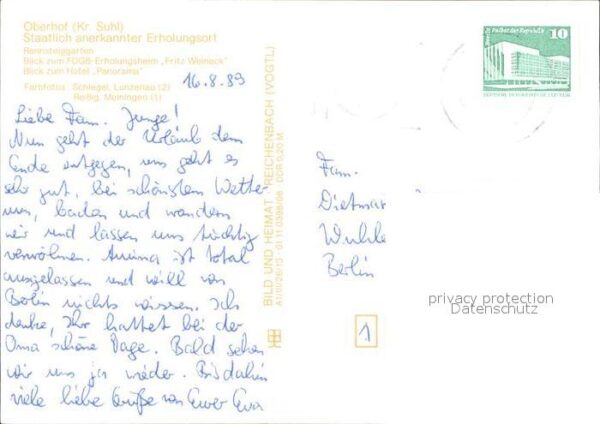 Oberhof (Kr. Suhl)
Staatlich anerkannter Erholungsort
Rennsteiggarten
Blick zum FDGB-Erholungsheim „Fritz Weineck"
Blick zum Hotel „Panorama"
Farbfotos: Schlegel, Lunzenau (2)
Reißig, Meiningen (1)
16.8.89
Liebe Fam. Junge!
Nun geht der Urlaub dem
Ende entgegen, uns geht es
sehr gut, bei schönstem Wetter
baden und wandern
wir und lassen uns tüchtig
verwöhnen. ist total
ausgelassen und will von
Berlin nichts wissen. Ich
denke, Ihr hattet bei der
Oma schöne Tage. Bald sehen
wir uns ja wieder. Bis dahin
viele liebe Grüße von Euer Eva
BILD UND HEIMAT REICHENBACH (VOGTL)
DDR 0,40 M
Palast der Republik
10
Fam.
Dietmar
Wuhle
Berlin
1
privacy protection
Datenschutz